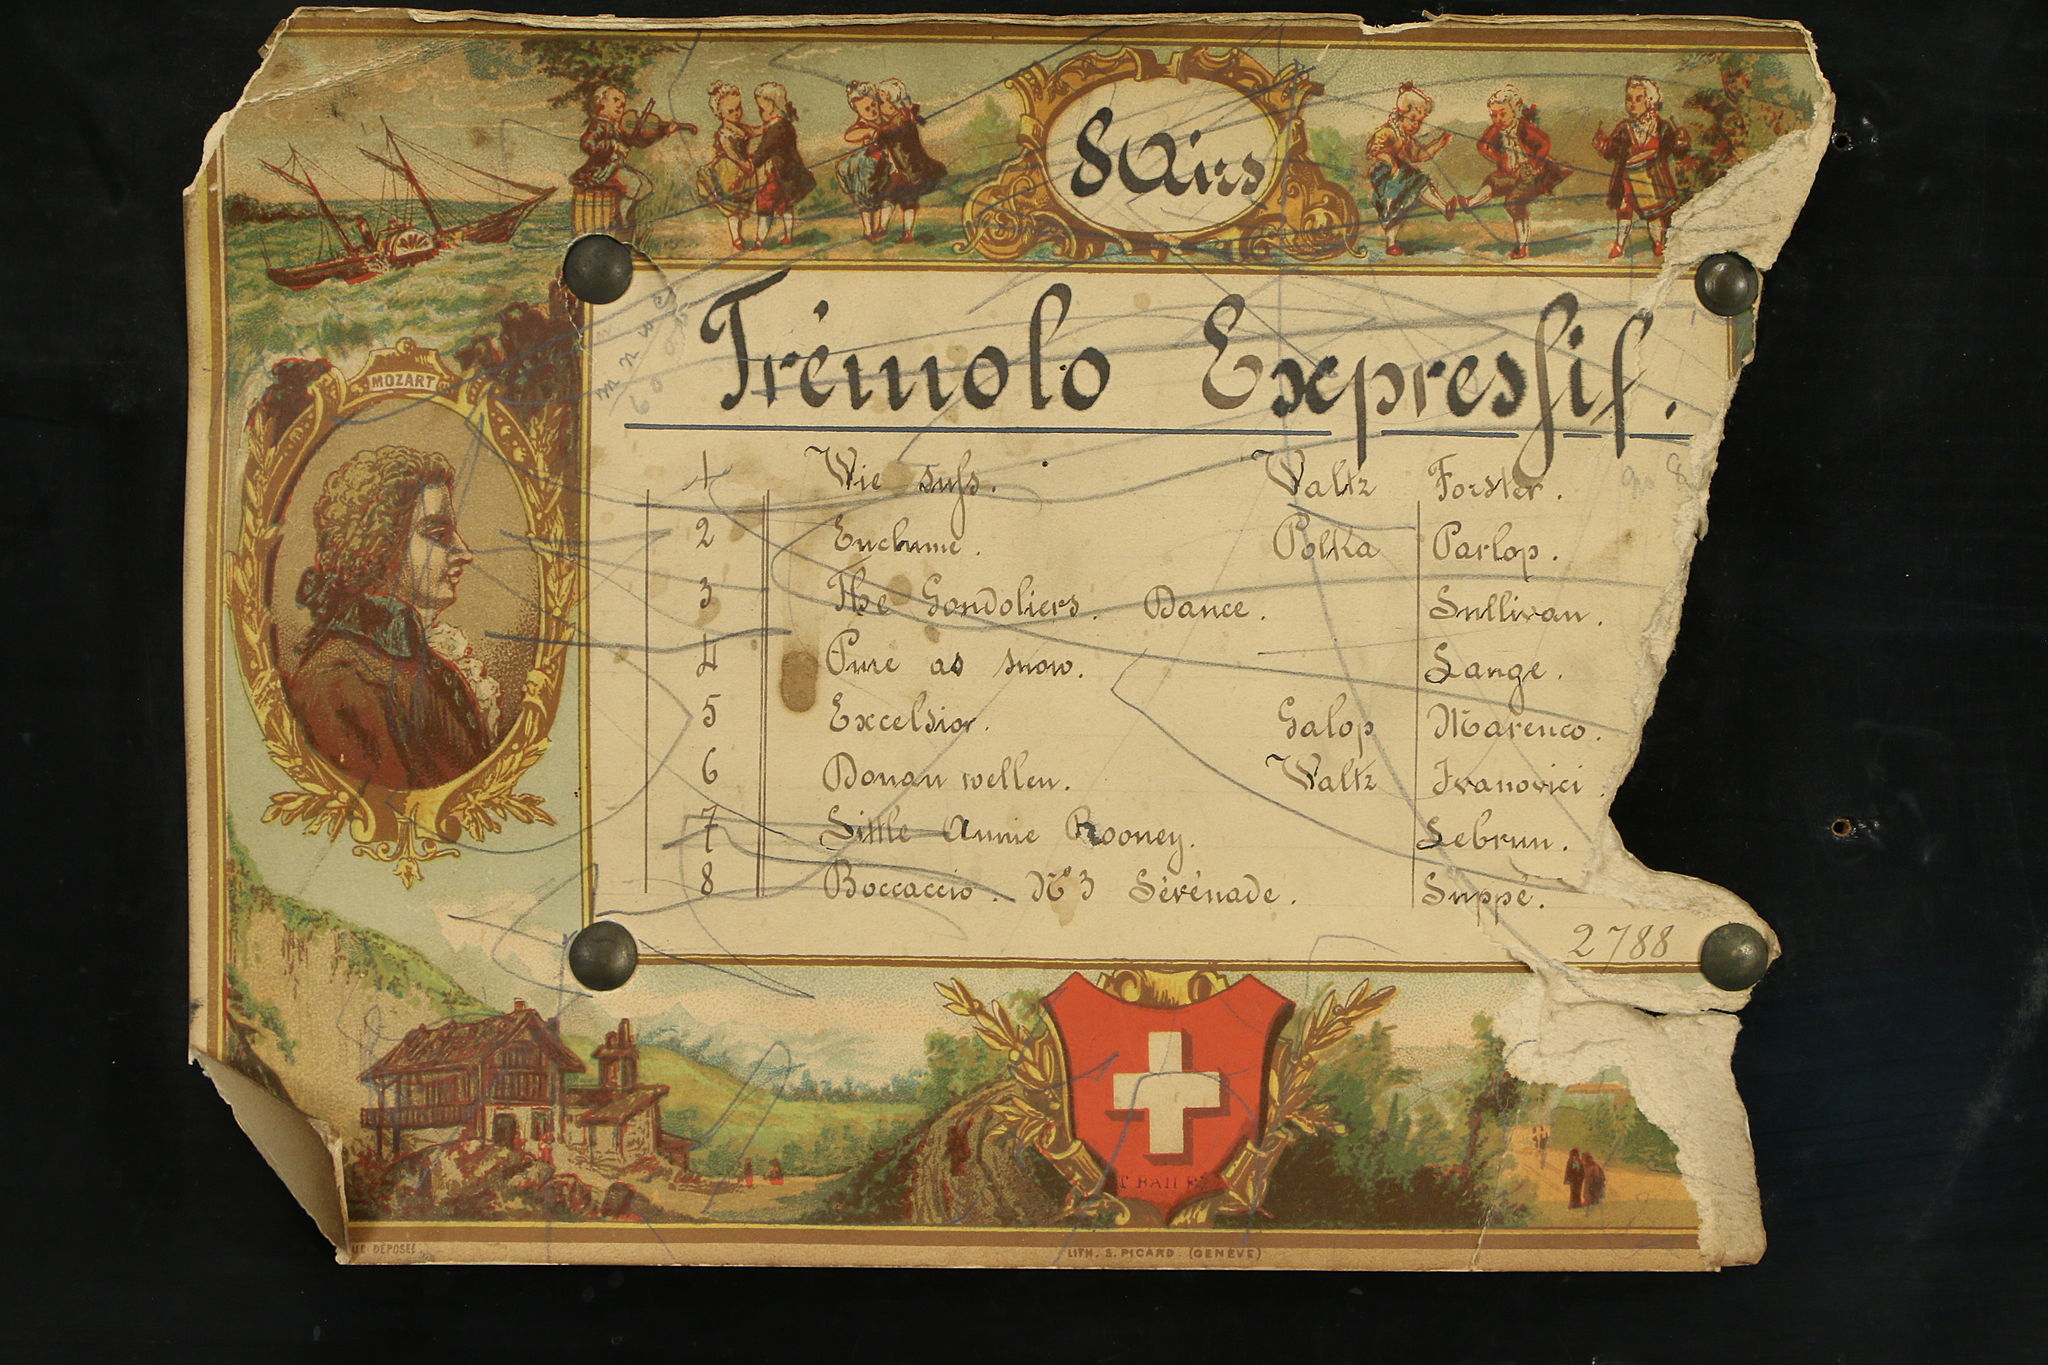 8 Airs
MOZART
Trémolo Expressif.
1 Wie suss. Waltz Forster.
2 Enclume. Polka Parlop.
3 The Gondoliers. Dance. Sullivan.
4 Pure as snow. Lange.
5 Excelsior. Galop Marenco.
6 Donau wellen. Waltz Ivanovici.
7 Little Annie Rooney. Lebrun.
8 Boccaccio. Nº 3 Sérénade. Suppé.
2788
UE DÉPOSÉE
LITH. S. PICARD. (GENÈVE)